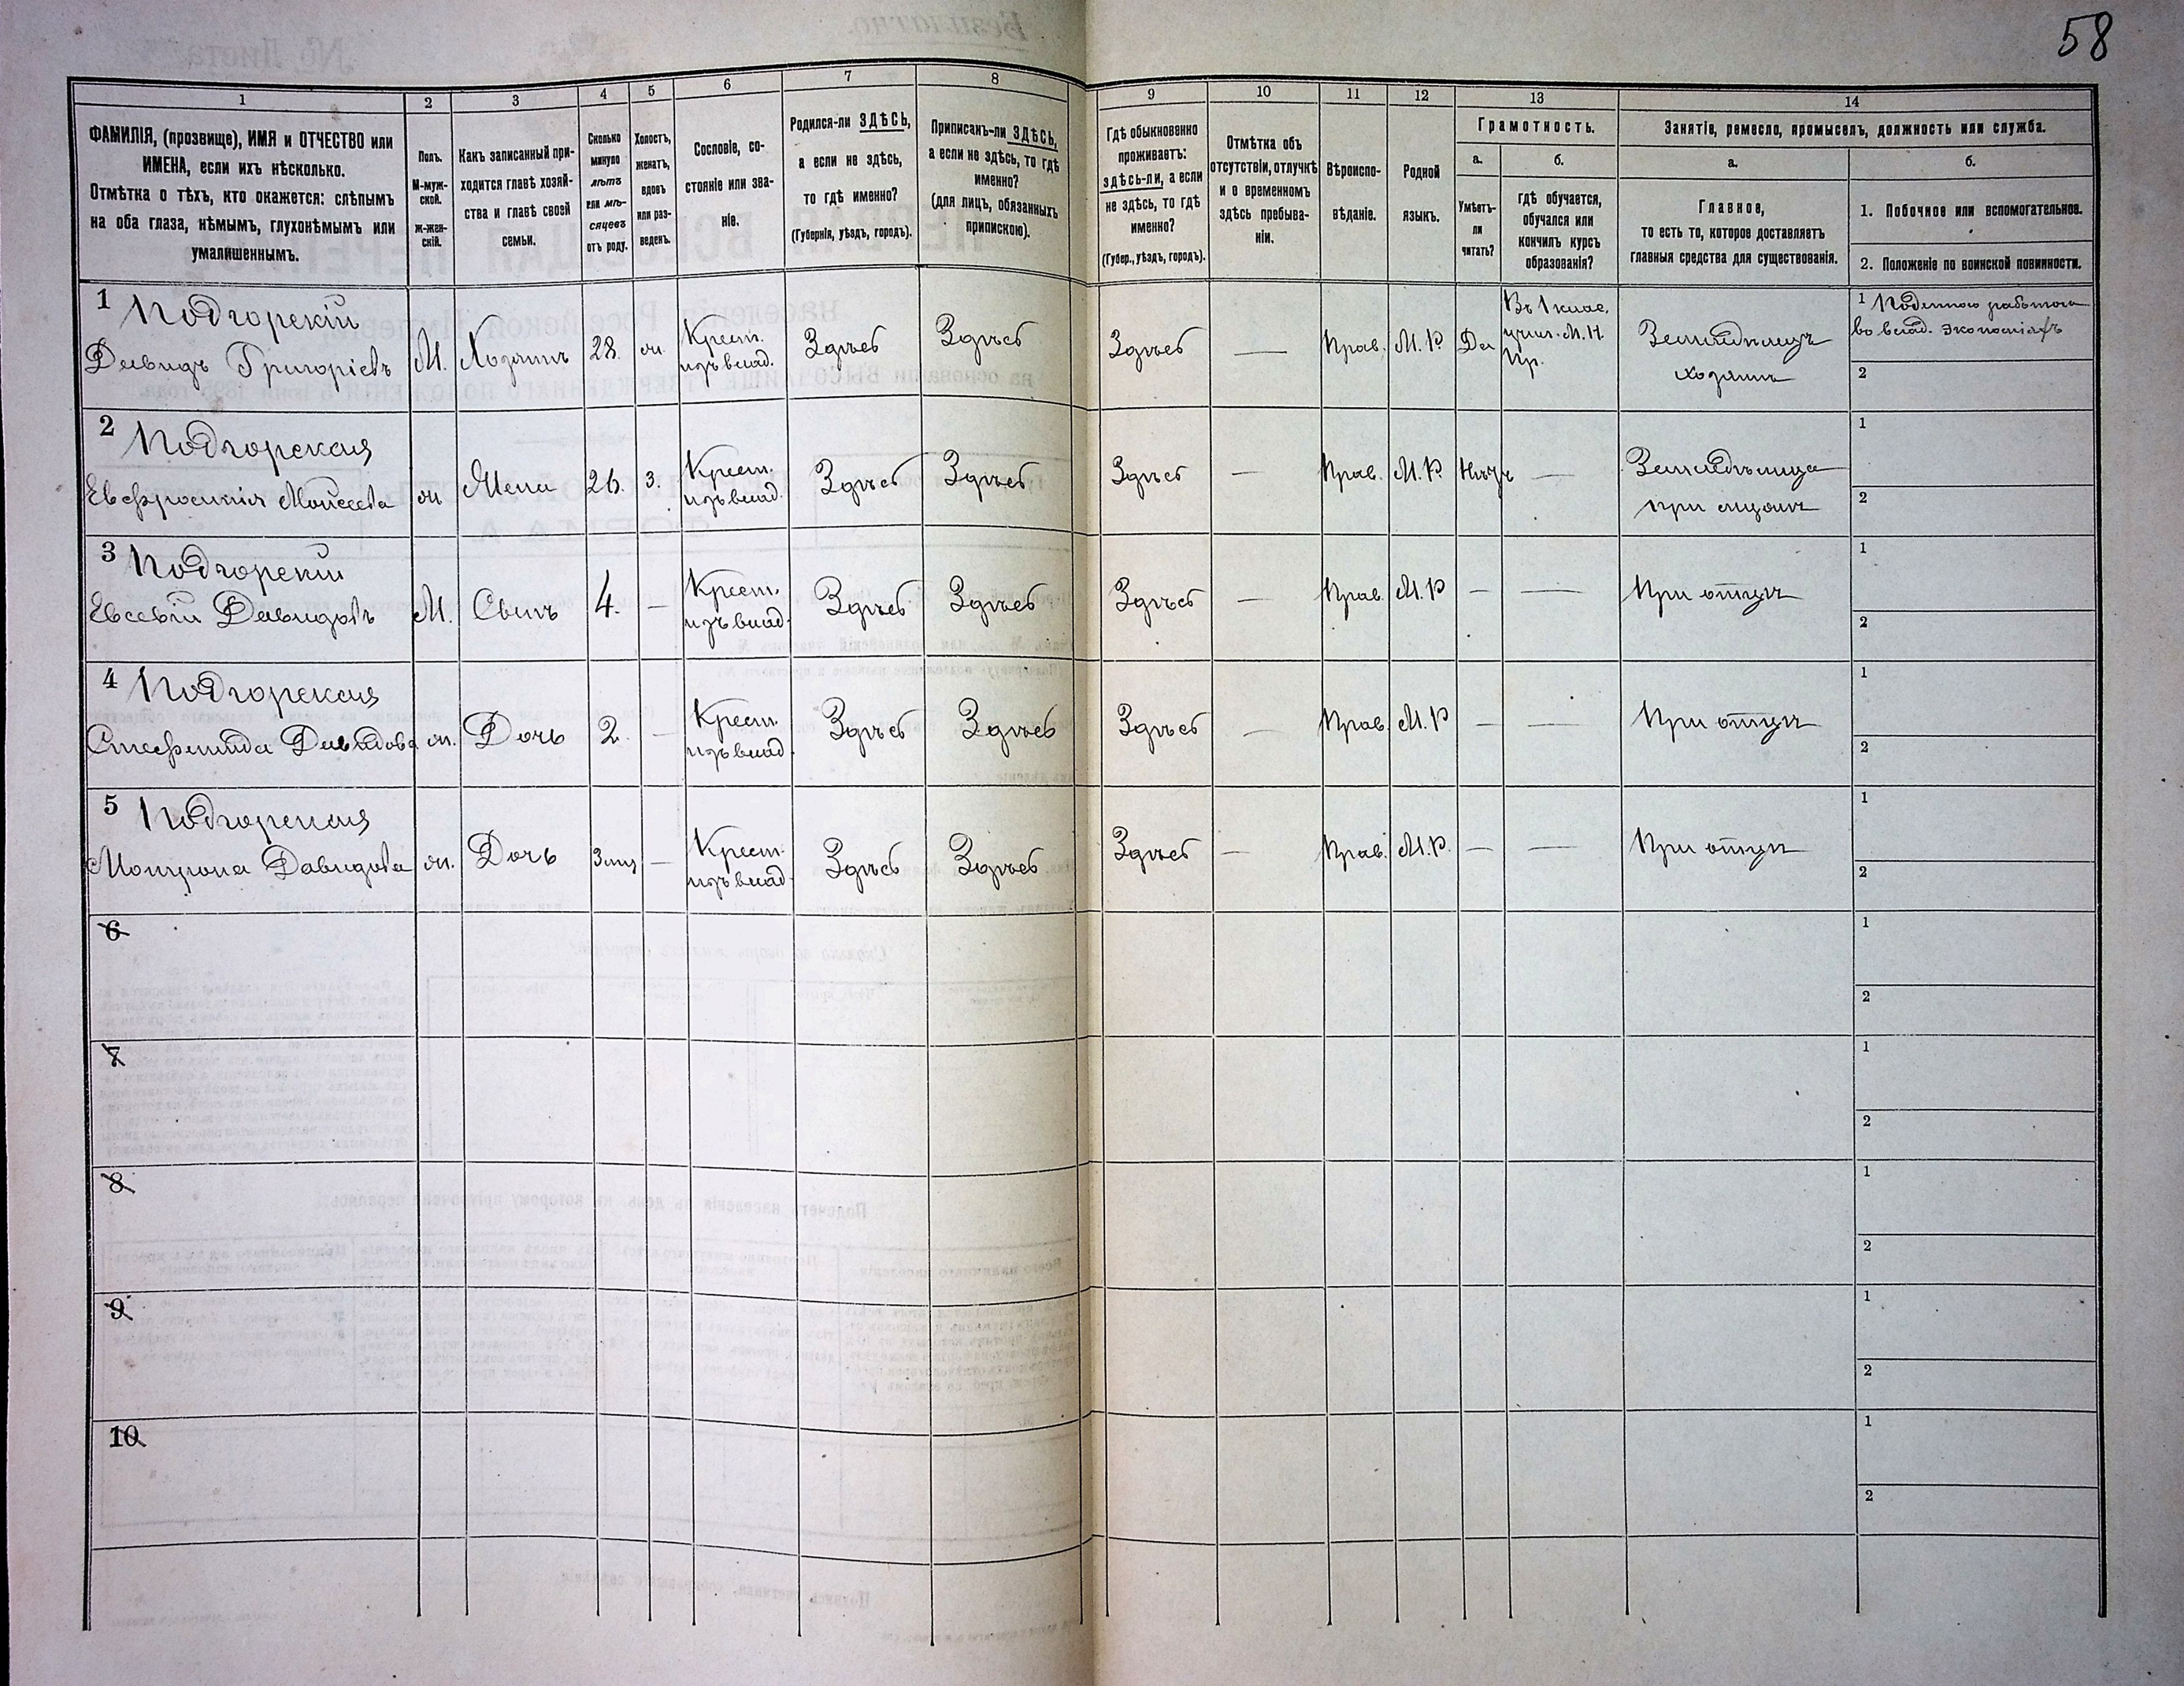 58
1
2
3
4
5
6
7
8
9
10
11
12
13
14
ФАМИЛІЯ, (прозвище), ИМЯ и ОТЧЕСТВО или
ИМЕНА, если ихъ нѣсколько.
Отмѣтка о тѣхъ, кто окажется: слѣпымъ
на оба глаза, нѣмымъ, глухонѣмымъ или
умалишеннымъ.
Полъ.
М-муж-
ской.
ж-жен-
скій.
Какъ записанный при-
ходится главѣ хозяй-
ства и главѣ своей
семьи.
Сколько
минуло
лѣтъ
или мѣ-
сяцевъ
отъ роду.
Холостъ,
женатъ,
вдовъ
или раз-
веденъ.
Сословіе, со-
стояніе или зва-
ніе.
Родился-ли ЗДѢСЬ,
а если не здѣсь,
то гдѣ именно?
(Губернія, уѣздъ, городъ).
Приписанъ-ли ЗДѢСЬ,
а если не здѣсь, то гдѣ
именно?
(для лицъ, обязанныхъ
припискою).
Гдѣ обыкновенно
проживаетъ:
здѣсь-ли, а если
не здѣсь, то гдѣ
именно?
(Губер., уѣздъ, городъ).
Отмѣтка объ
отсутствіи, отлучкѣ
и о временномъ
здѣсь пребыва-
ніи.
Вѣроиспо-
вѣданіе.
Родной
языкъ.
Грамотность.
а.
Умѣетъ-
ли
читать?
б.
гдѣ обучается,
обучался или
кончилъ курсъ
образованія?
Занятіе, ремесло, промыселъ, должность или служба.
а.
Главное,
то есть то, которое доставляетъ
главныя средства для существованія.
б.
1. Побочное или вспомогательное.
2. Положеніе по воинской повинности.
1 Подгорскій
Давидъ Григорьевъ
М.
Хозяинъ
28.
ж.
Крест.
изъ влад.
Здѣсь
Здѣсь
Здѣсь
—
Прав.
М. Р.
Да
Въ 1 клас.
учил. М. Н.
Пр.
Земледѣлецъ
хозяинъ
1 Поденно
во влад. экономіяхъ
2
2 Подгорская
Евфросинія Мойсеева
ж
Жена
26.
З.
Крест.
изъ влад.
Здѣсь
Здѣсь
Здѣсь
—
Прав.
М. Р.
Нѣтъ
—
Земледѣлица
при мужѣ
1
2
3 Подгорскій
Евсевій Давидовъ
М.
Сынъ
4.
—
Крест.
изъ влад.
Здѣсь
Здѣсь
Здѣсь
—
Прав.
М. Р
—
—
При отцѣ
1
2
4 Подгорская
Стефанида Давидова
ж.
Дочь
2
—
Крест.
изъ влад.
Здѣсь
Здѣсь
Здѣсь
—
Прав.
М. Р
—
—
При отцѣ
1
2
5 Подгорская
Мотрона Давидова
ж.
Дочь
—
Крест.
изъ влад.
Здѣсь
Здѣсь
Здѣсь
—
Прав.
М. Р.
—
—
При отцѣ
1
2
6
1
2
7
1
2
8
1
2
9
1
2
10
1
2